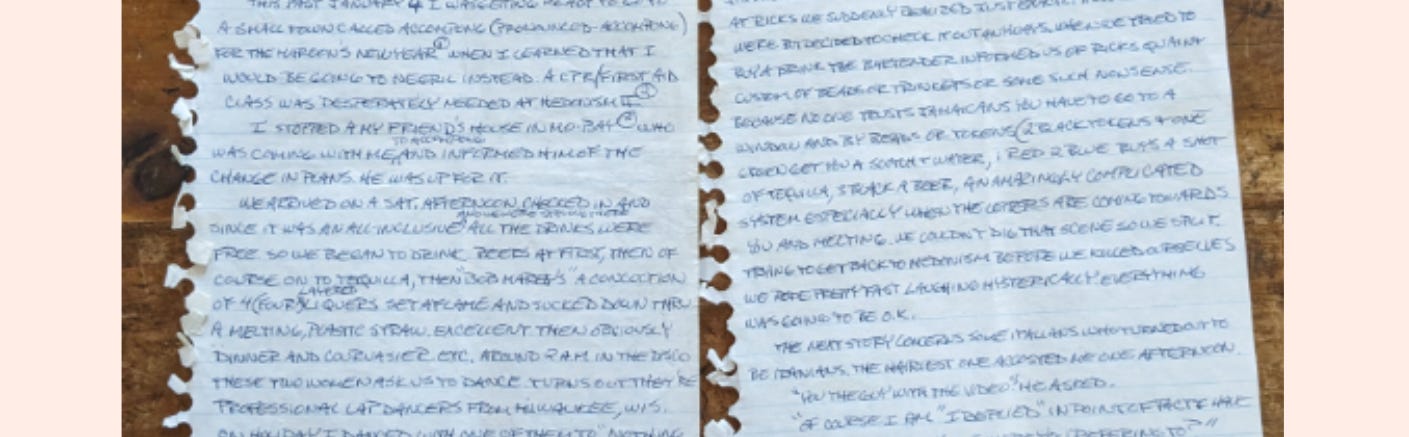 THIS PAST JANUARY 4 I WAS GETTING READY TO GO TO
A SMALL TOWN CALLED ACCOMPONG (PRONOUNCED-ACCOMPONG)
FOR THE MAROON'S NEW YEAR WHEN I LEARNED THAT I
WOULD BE GOING TO NEGRIL INSTEAD. A CPR/FIRST AID
CLASS WAS DESPERATELY NEEDED AT HEDONISM II
I STOPPED A MY FRIEND'S HOUSE IN MO-BAY WHO
TO ACCOMPONG
WAS COMING WITH ME, AND INFORMED HIM OF THE
CHANGE IN PLANS. HE WAS UP FOR IT.
WE ARRIVED ON A SAT. AFTERNOON, CHECKED IN AND
SINCE IT WAS AN ALL-INCLUSIVE ALL THE DRINKS WERE
FREE SO WE BEGAN TO DRINK. BEERS AT FIRST, THEN OF
COURSE ON TO TEQUILLA, THEN "BOB MARLEY'S" A CONCOCTION
LAYERED
OF 4 (FOUR) LIQUERS SET AFLAME AND SUCKED DOWN THRU
A MELTING, PLASTIC STRAW. EXCELLENT THEN OBVIOUSLY
DINNER AND COURVASIER ETC. AROUND 2 AM IN THE DISCO
THESE TWO WOMEN ASK US TO DANCE. TURNS OUT THEY'RE
PROFESSIONAL LAP DANCERS FROM MILWAUKEE, WIS.
ON HOLIDAY. I DANCED WITH ONE OF THEM TO "NOTHING
AT RICKS WE SUDDENLY REALIZED JUST
WERE BUT DECIDED TO CHECK IT OUT ANYHOW. WHEN WE TRIED TO
BUY A DRINK THE BARTENDER INFORMED US OF RICKS QUAINT
CUSTOM OF BEADS OR TRINKETS OR SOME SUCH NONSENSE.
BECAUSE NO ONE TRUSTS JAMAICANS YOU HAVE TO GO TO A
WINDOW AND BY BEADS OR TOKENS (2 BLACK TOKENS + ONE
GREEN GET YOU A SCOTCH + WATER, 1 RED 2 BLUE BUYS A SHOT
OF TEQUILLA, 3 BLACK A BEER, AN AMAZINGLY COMPLICATED
SYSTEM ESPECIALLY WHEN THE COLORS ARE COMING TOWARDS
YOU AND MELTING. WE COULDN'T DIG THAT SCENE SO WE SPLIT.
TRYING TO GET BACK TO HEDONISM BEFORE WE KILLED OURSELVES
WE RODE PRETTY FAST LAUGHING HYSTERICALLY EVERYTHING
WAS GOING TO BE O.K.
THE NEXT STORY CONCERNS SOME ITALIANS WHO TURNED OUT TO
BE IRANIANS. THE HAIRIEST ONE ACCOSTED ME ONE AFTERNOON.
"YOU THE GUY WITH THE VIDEO?" HE ASKED.
"OF COURSE I AM" I REPLIED "IN POINT OF FACT
REFERRING TO?"